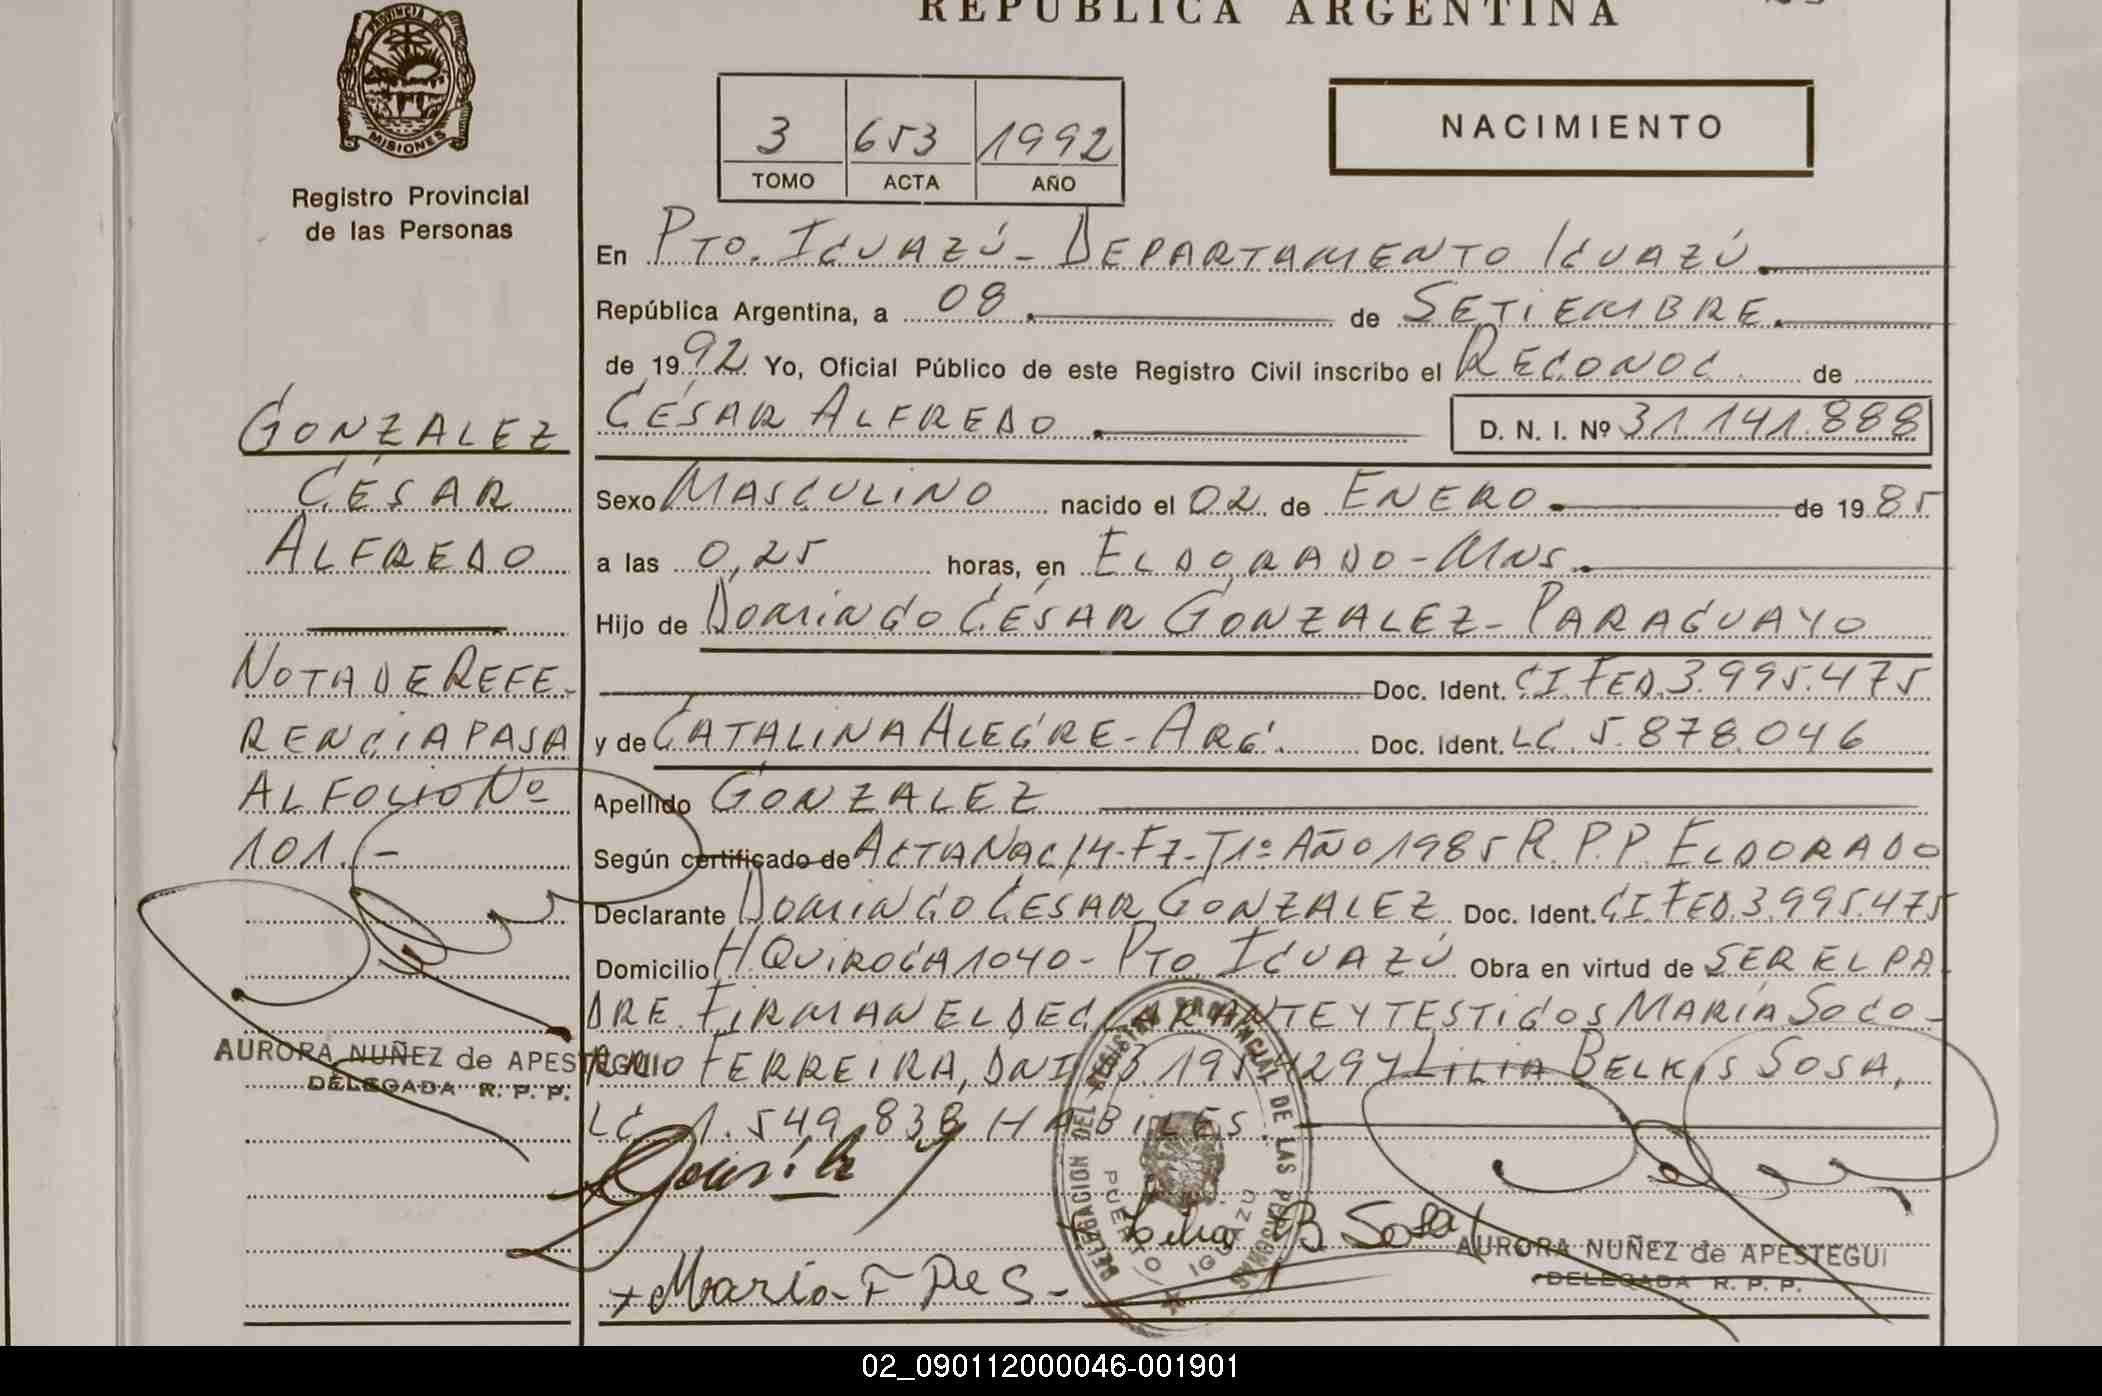 REPUBLICA ARGENTINA
PROVINCIA DE
MISIONES
Registro Provincial
de las Personas
3 653 1992
TOMO ACTA AÑO
NACIMIENTO
En PTO. IGUAZÚ - DEPARTAMENTO IGUAZÚ.
República Argentina, a 08 de SETIEMBRE.
de 1992 Yo, Oficial Público de este Registro Civil inscribo el RECONOC. de
CÉSAR ALFREDO. D. N. I. Nº 31.141.888
GONZALEZ
CÉSAR
ALFREDO
Sexo MASCULINO nacido el 02 de ENERO. de 1985
a las 0,25 horas, en ELDORADO - MNS.
Hijo de DOMINGO CÉSAR GONZALEZ - PARAGUAYO
Doc. Ident. CI FED. 3.995.475
y de CATALINA ALEGRE - ARG. Doc. Ident. LC. 5.878.046
Apellido GONZALEZ
Según certificado de ACTA NAC 14-F7-T1º AÑO 1985 R.P.P. ELDORADO
Declarante DOMINGO CESAR GONZALEZ Doc. Ident. CI. FED. 3.995.475
Domicilio H. QUIROGA 1040 - PTO IGUAZÚ Obra en virtud de SER EL PA
DRE. FIRMAN EL DECLARANTE Y TESTIGOS MARÍA SOCO-
RRO FERREIRA, DNI LILIA BELKIS SOSA,
LC. 1.549.838 HABILES.
NOTA DE REFE-
RENCIA PASA
AL FOLIO Nº
101.-
AURORA NUÑEZ de APESTEGUI
DELEGADA R. P. P.
DELEGACION DEL REGISTRO PROVINCIAL DE LAS PERSONAS
PUERTO IGUAZU
Lilia B Sosa
María F De S-
AURORA NUÑEZ de APESTEGUI
DELEGADA R. P. P.
02_090112000046-001901